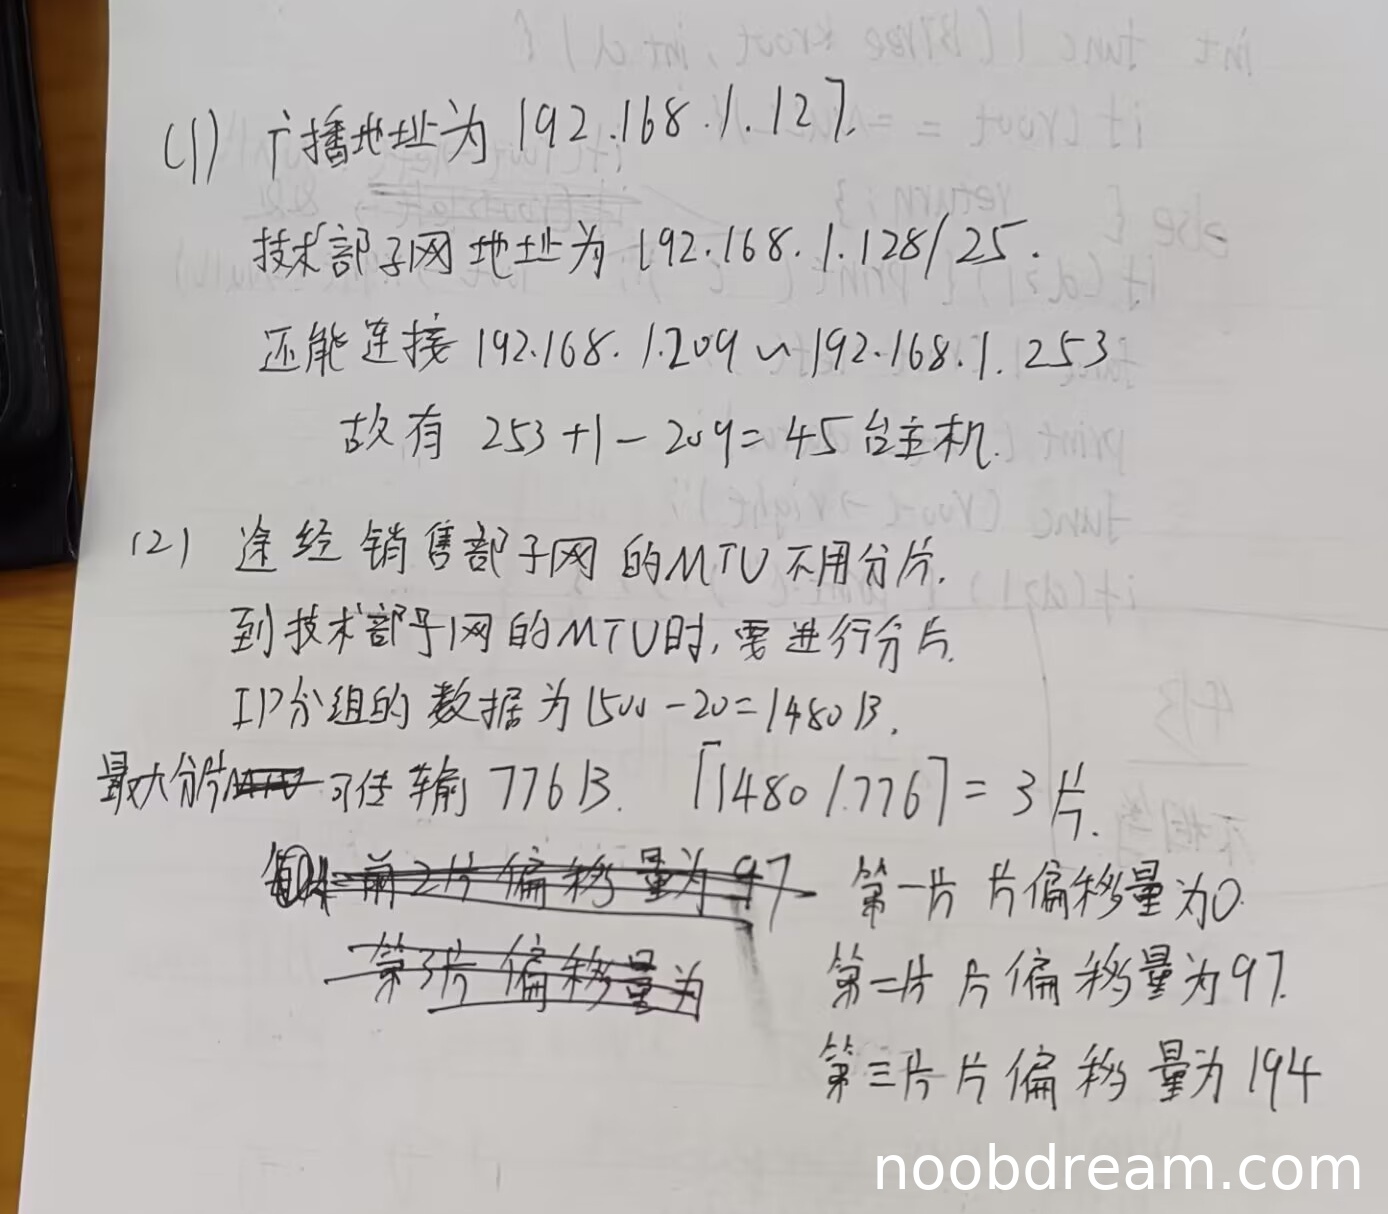 (1) 广播地址为 192.168.1.127.
技术部子网地址为 192.168.1.128/25.
还能连接 192.168.1.209 ~ 192.168.1.253
故有 253+1-209=45台主机.
(2) 途经销售部子网的MTU不用分片.
到技术部子网的MTU时,需进行分片.
IP分组的数据为1500-20=1480B.
最大分片可传输 776B. ⌈1480/776⌉=3片.
前2片偏移量为97 第一片 片偏移量为0.
第3片偏移量为 第二片 片偏移量为97.
第三片 片偏移量为194
noobdream.com